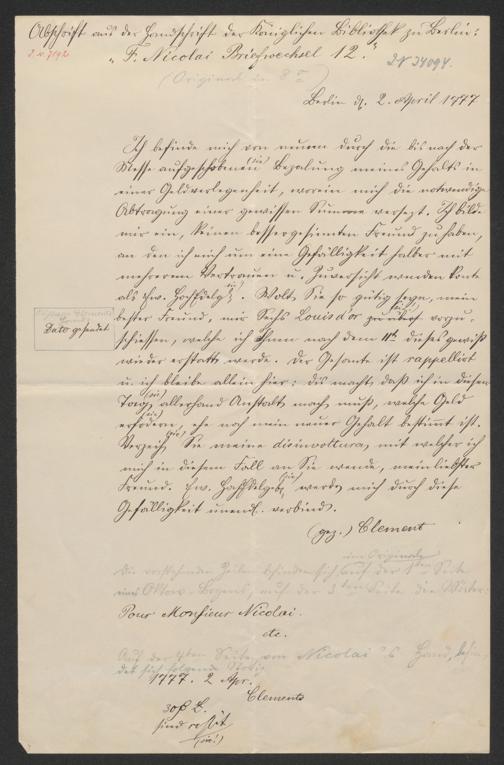 Abschrift aus der Handschrift der Königlichen Bibliothek zu Berlin:
"F. Nicolai Briefwechsel 12."
J. N. 7192
I N 34094.
(Original in 8°)
Berlin d. 2. April 1777
Ich befinde mich von neuem durch die bis nach der
Messe aufgeschobenen (sic) Bezalung meines Gehalts in
einer Geldverlegenheit, worein mich die notwendige
Abtragung einer gewissen Summe versezt. Ich bilde
mir ein, keinen bessergesinnten Freund zu haben,
an den ich mich um eine Gefälligkeit halber mit
mehrerem Vertrauen u. Zuversicht wenden konte
als Ew. (sic) Wolt. Sie so gütig seyn, mein
bester Freund, mir Sechs Louisdor vorzu-
schiessen, welche ich Ihnen nach dem 11th dieses gewiß
wieder erstatten werde. Der Gesante ist rappellirt
u. ich bleibe allein hier: dis macht, daß ich in diesen
Tagen (sic) allerhand Anstalten machen muß, welche Geld
erfodern, (sic) ehe noch mein neuer Gehalt bestimmt ist.
Verzeihn (sic) Sie meine disinvoltura, mit welcher ich
mich in diesem Fall an Sie wende, mein liebster
Freund. Ew. (sic) werden mich durch diese
Gefälligkeit unendl. verbinden.
(gez.) Clement
Dato gesendet
im Originale
Die vorstehenden Zeilen befinden sich auf der 1ten Seite
eines Oktav-Bogens, auf der 3ten Seite die Wörter:
Pour Monsieur Nicolai.
etc.
Auf der 4ten Seite von Nicolai's Hand,
det sich folgende
1777. 2 Apr.
Clement
sind
(sic!)